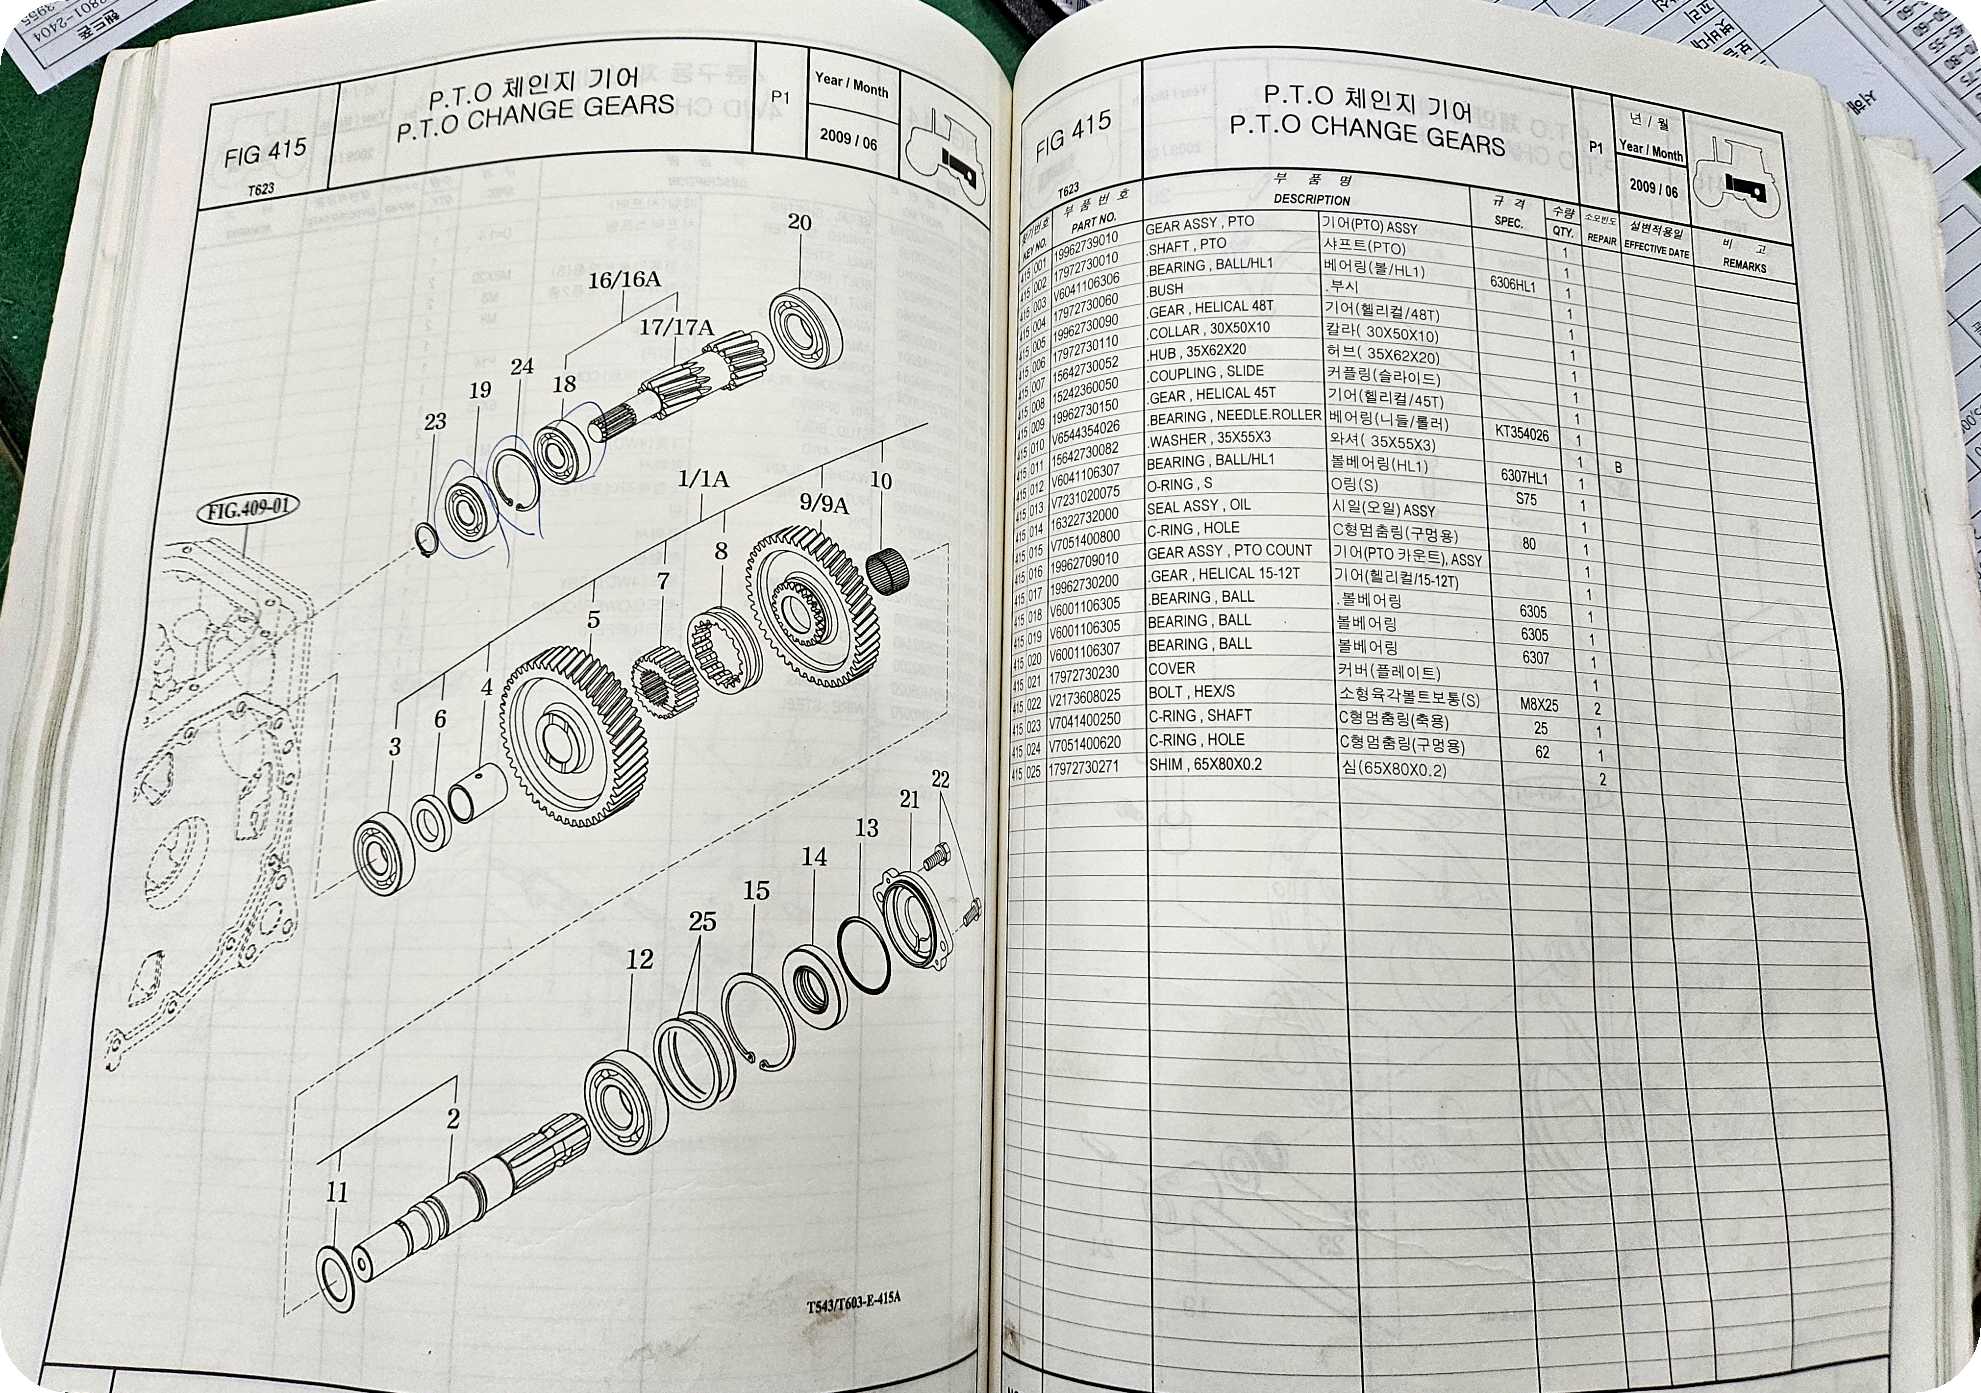 P.T.O 체인지 기어
P.T.O CHANGE GEARS
FIG 415
T623
P1
Year / Month
2009 / 06
20
16/16A
17/17A
24
18
19
23
FIG.409-01
1/1A
10
9/9A
8
7
5
4
6
3
22
21
13
14
15
25
12
2
11
T543/T603-E-415A
P.T.O 체인지 기어
P.T.O CHANGE GEARS
FIG 415
T623
P1
년 / 월
Year / Month
2009 / 06
KEY NO. 부 품 번 호 PART NO. 부 품 명 DESCRIPTION 규 격 SPEC. 수량 QTY. 소모빈도 REPAIR 실변적용일 EFFECTIVE DATE 비 고 REMARKS
415 001 19962739010 GEAR ASSY , PTO 기어(PTO) ASSY 1
415 002 17972730010 .SHAFT , PTO 샤프트(PTO) 1
415 003 V6041106306 .BEARING , BALL/HL1 베어링(볼/HL1) 6306HL1 1
415 004 17972730060 .BUSH .부시 1
415 005 19962730090 .GEAR , HELICAL 48T 기어(헬리컬/48T) 1
415 006 17972730110 .COLLAR , 30X50X10 칼라( 30X50X10) 1
415 007 15642730052 .HUB , 35X62X20 허브( 35X62X20) 1
415 008 15242360050 .COUPLING , SLIDE 커플링(슬라이드) 1
415 009 19962730150 .GEAR , HELICAL 45T 기어(헬리컬/45T) 1
415 010 V6544354026 .BEARING , NEEDLE.ROLLER 베어링(니들/롤러) KT354026 1
415 011 15642730082 .WASHER , 35X55X3 와셔( 35X55X3) 1 B
415 012 V6041106307 BEARING , BALL/HL1 볼베어링(HL1) 6307HL1 1
415 013 V7231020075 O-RING , S O링(S) S75 1
415 014 16322732000 SEAL ASSY , OIL 시일(오일) ASSY 1
415 015 V7051400800 C-RING , HOLE C형멈춤링(구멍용) 80 1
415 016 19962709010 GEAR ASSY , PTO COUNT 기어(PTO 카운트), ASSY 1
415 017 19962730200 .GEAR , HELICAL 15-12T 기어(헬리컬/15-12T) 1
415 018 V6001106305 .BEARING , BALL .볼베어링 6305 1
415 019 V6001106305 BEARING , BALL 볼베어링 6305 1
415 020 V6001106307 BEARING , BALL 볼베어링 6307 1
415 021 17972730230 COVER 커버(플레이트) 1
415 022 V2173608025 BOLT , HEX/S 소형육각볼트보통(S) M8X25 2
415 023 V7041400250 C-RING , SHAFT C형멈춤링(축용) 25 1
415 024 V7051400620 C-RING , HOLE C형멈춤링(구멍용) 62 1
415 025 17972730271 SHIM , 65X80X0.2 심(65X80X0.2) 2